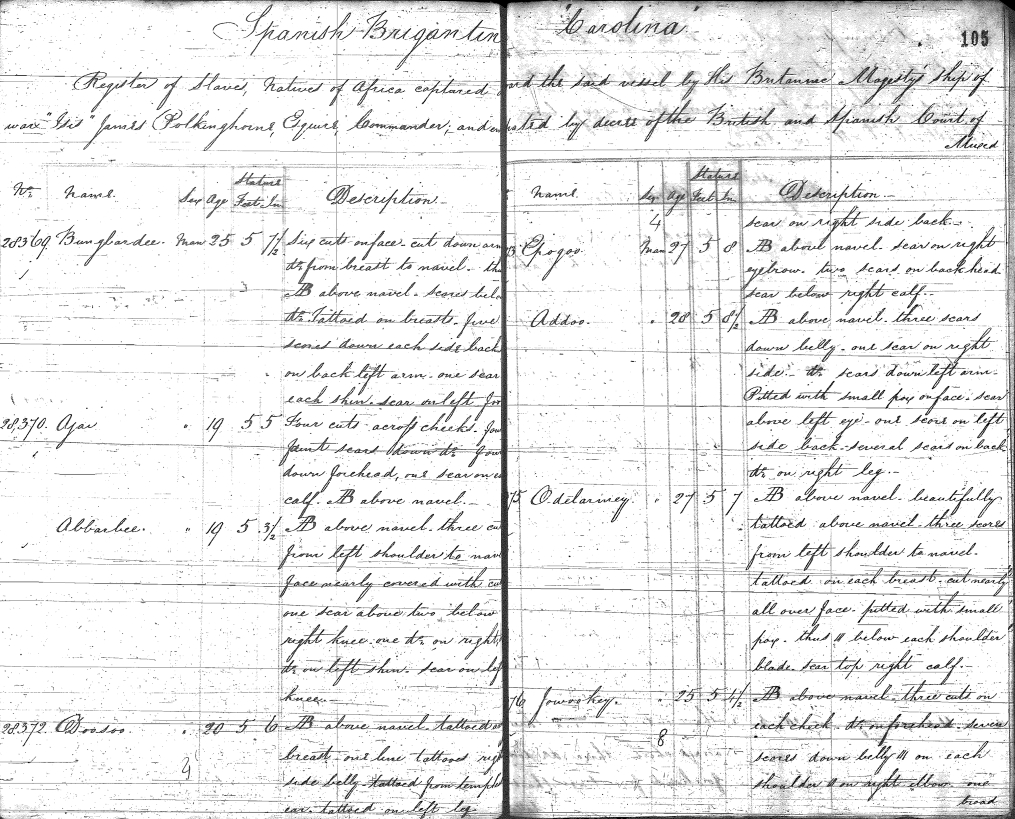 Spanish Brigantin "Carolina"
105
Register of Slaves, Natives of Africa captured
and the said vessel by His Britannic Majesty's Ship of
war "Isis" James Polkinghorne, Esquire, Commander; and
by decree of the British and Spanish Court of
Mixed
No. Name Sex Age Stature Feet. In. Description
28369 Bungbardee. Man 25 5 7½ Six cuts on face. cut down arm
do. from breast to navel.
AB above navel. scores bel
do. Tattoed on breasts. five
scores down each side back
on back left arm. one scar
each shin. scar on left
28,370. Ajai " 19 5 5 Four cuts across cheeks.
faint scars down do.
down forehead, one scar on
calf. AB above navel.
Abbarbee. " 19 5 3½ AB above navel. three cu
from left shoulder to nav
face nearly covered with cu
one scar above two below
right knee. one do. on right
do. on left shin. scar on lef
knee.
28372. Doosoo. " 20 5 6 AB above navel. tattoed
breast. one line tattooes rig
side belly. tattoed from temple
ear. tattoed on left leg
4
Name Sex Age Stature Feet. In. Description
4
scar on right side back.
Epogoo. Man 27 5 8 AB above navel. scar on right
eyebrow. two scars on back head
scar below right calf.
Addoo. " 28 5 8½ AB above navel. three scars
down belly. one scar on right
side. do. scars down left arm.
Pitted with small pox on face. scar
above left eye. one scar on left
side back. several scars on back
do. on right leg.
75 Odelarmey. " 27 5 7 AB above navel. beautifully
tattoed above navel. three scores
from left shoulder to navel.
tattoed on each breast. cut nearly
all over face. pitted with small
pox. thus III below each shoulder
blade. scar top right calf.
76 Jowookey. " 25 5 4½ AB above navel. three cuts on
each cheek. do. on forehead. seven
scores down belly III on each
shoulder 0 on right elbow. one
broad
8